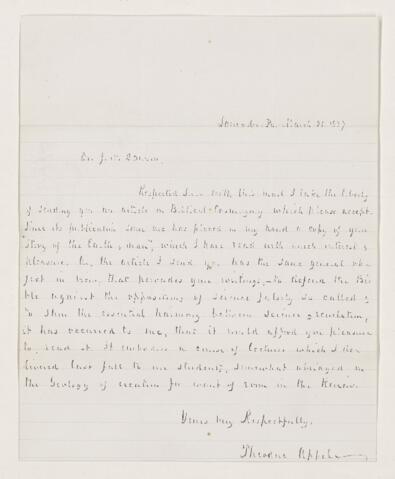 Lancaster, Pa. March 31, 1887
Respected Sir: With this mail I take the liberty
of sending you an article on Biblical Cosmogony which please accept.
Since its publication some one has placed in my hand a copy of your
story of the Earth & man, which I have read with much interest &
pleasure. As the article I send you has the same general ob-
ject in view, that pervades your writings, to defend the Bi-
ble against the oppositions of Science falsely so called &
to show the essential harmony between science & revelation,
it has occurred to me, that it would afford you pleasure
to read it. It embodies a course of lectures which I de-
livered last fall to my students, somewhat abridged in
the Geology of creation for want of room in the Review.
Yours very Respectfully,
Theodore Appel